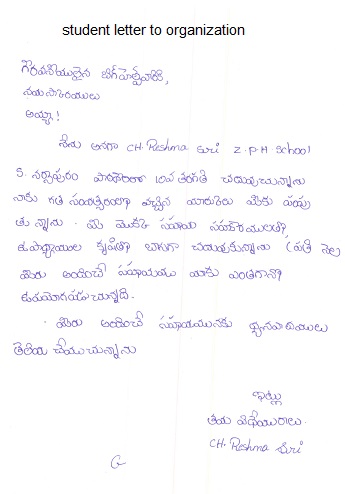 student letter to organization
గౌరవనీయులైన బిగ్‌హెల్ప్‌వారికి,
నమస్కారములు
అయ్యా!
నేను అనగా CH. Reshma Suri Z.P.H School
S. నర్సాపురం పాఠశాలలో 10వ తరగతి చదువుచున్నాను
నాకు గత సంవత్సరంలో వచ్చిన మార్కులు మీకు పంపు
తున్నాను. మీ యొక్క సహాయ సహకారములతో
ఉపాధ్యాయుల కృషితో బాగుగా చదువుకున్నాను ప్రతి నెల
మీరు అందించే సహాయము మాకు ఎంతగానో
ఉపయోగపడుచున్నది.
మీరు అందించే సహాయమునకు ధన్యవాదములు
తెలియచేయుచున్నాను
ఇట్లు
తమ విధేయురాలు
CH. Reshma Suri